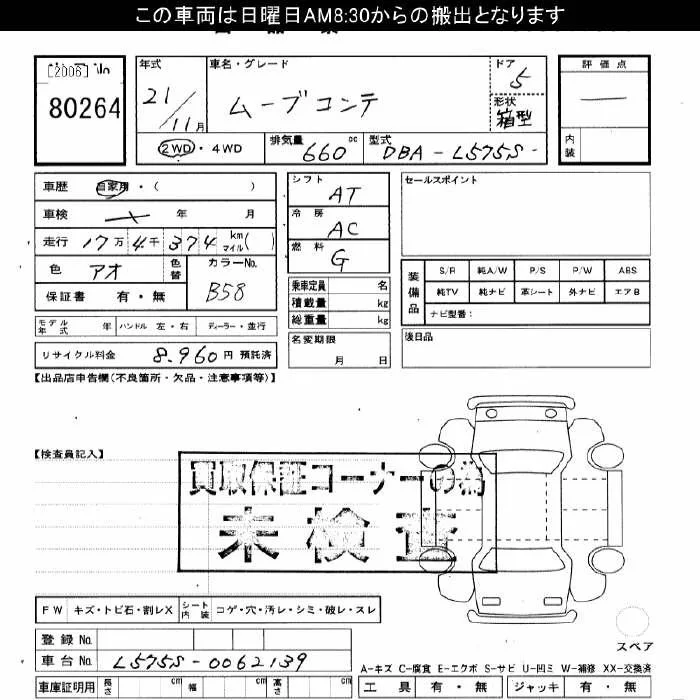 この車両は日曜日AM8:30からの搬出となります
[2006]
80264
年式 21/11月
車名・グレード ムーブコンテ
ドア 5
形状 箱型
評価点 —
内装
2WD・4WD
排気量 660 cc
型式 DBA-L575S-
車歴 自家用・( )
車検 年 月
走行 17万 4千 374 km マイル( )
色 アオ 色替
カラーNo. B58
保証書 有・無
シフト AT
冷房 AC
燃料 G
乗車定員 名
積載量 kg
総重量 kg
名変期限 月 日
セールスポイント
装備品
S/R 純A/W P/S P/W ABS
純TV 純ナビ 革シート 外ナビ エアB
ナビ型番:
後日品
モデル年式 年 ハンドル 左・右 ディーラー・並行
リサイクル料金 8,960円 預託済
【出品店申告欄(不良箇所・欠品・注意事項等)】
【検査員記入】
買取保証コーナーの為
未検査
FW キズ・トビ石・割レX シート内装 コゲ・穴・汚レ・シミ・破レ・スレ
スペア
登録No.
車台No. L575S-0062139
A-キズ C-腐食 E-エクボ S-サビ U-凹ミ W-補修 XX-交換済
車庫証明用 長さ cm 幅 cm 高さ cm
工具 有・無 ジャッキ 有・無